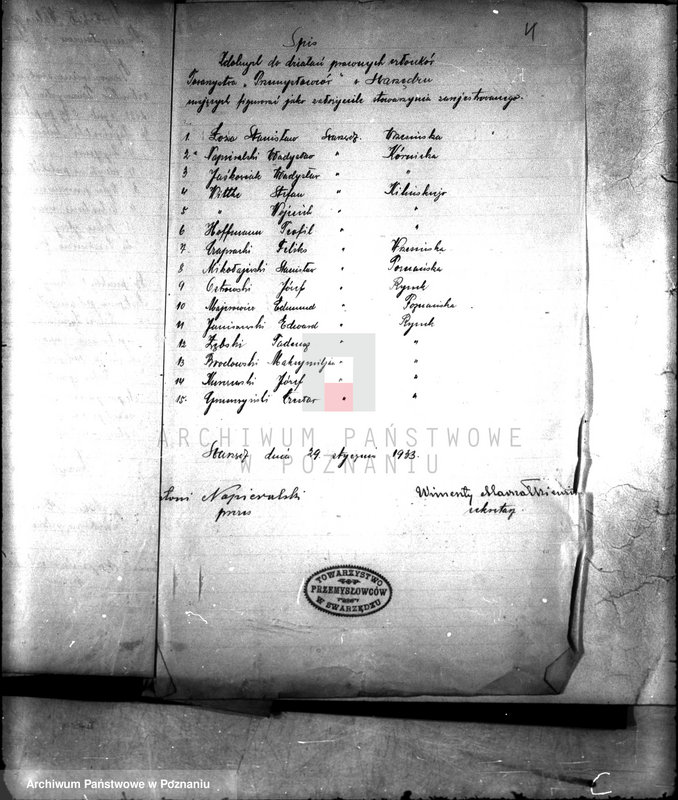 4
Spis
Zdolnych do działań prawnych członków
Towarzystwa „Przemysłowców" w Swarzędzu
mających figurować jako założyciele stowarzyszenia zarejestrowanego.
1 Łoza Stanisław Swarzędz Wrzesińska
2. Napieralski Władysław " Kórnicka
3 Jaśkowiak Władysław " "
4 Witthe Stefan " Kilińskiego
5 " Wojciech " "
6 Hoffmann Teofil " "
7. Czapracki Feliks " Wrzesińska
8 Mikołajewski Stanisław " Poznańska
9 Ostrowski Józef " Rynek
10 Majerowicz Edmund " Poznańska
11 Janiszewski Edward " Rynek
12 Zębski Tadeusz " "
13 Brodowski Maksymiljan " "
14 Kurowski Józef " "
15. Czesław " "
Swarzędz dnia 29 stycznia 1933.
Napieralski
prezes
Wincenty Marszałkiewicz
sekretarz
TOWARZYSTWO
PRZEMYSŁOWCÓW
W SWARZĘDZU
ARCHIWUM PAŃSTWOWE
W POZNANIU
Archiwum Państwowe w Poznaniu